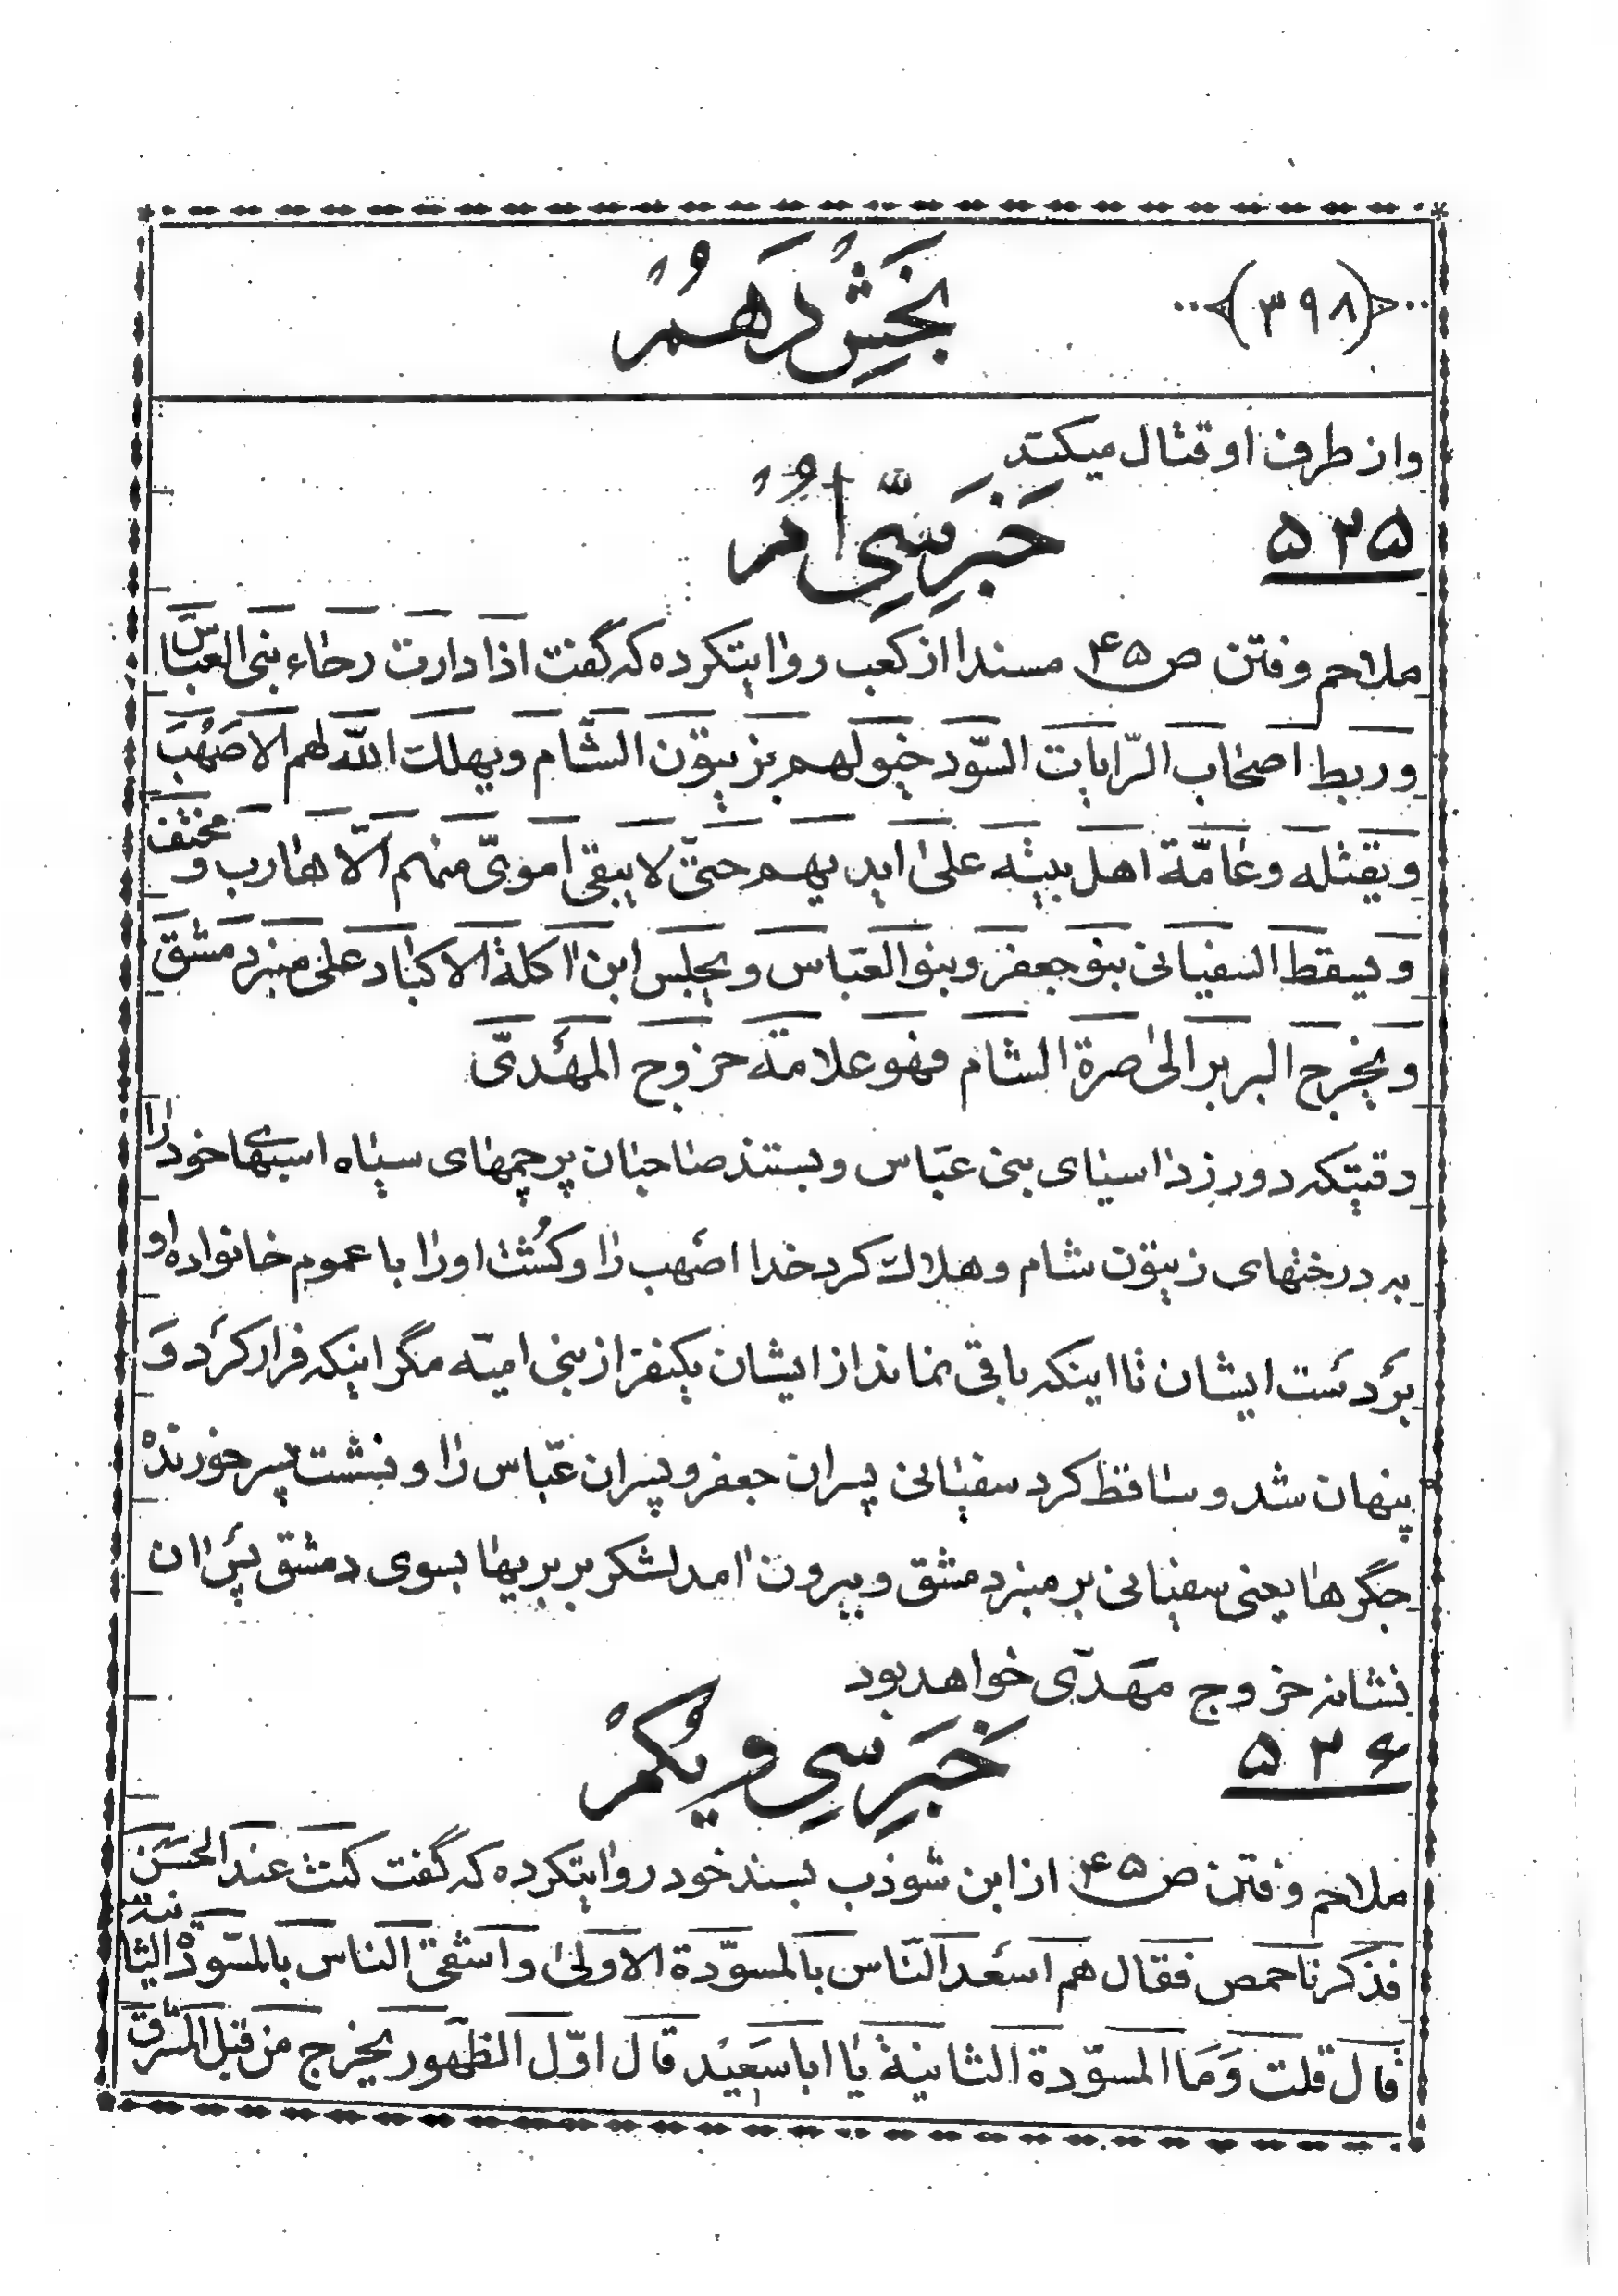 (۳۹۸)
بخش دهم
و از طرف او قتال میکند
۵۳۵
خبر سی ام
ملاحم و فتن ص ۴۵ مسندا از کعب روایتکرده که گفت اذا دارت رحاء بنی العباس
و ربط اصحاب الرّایات السّود خیولهم بزیتون الشام و یهلک الله لهم الاصهب
و یقتله و عامّة اهل بیته علی ایدیهم حتّی لا یبقی امویّ منهم الّا هارب و مختف
و یسقط السفیانی بنو جعفر و بنو العبّاس و یجلس ابن اکلة الاکباد علی منبر دمشق
و یخرج البربر الی صرة الشام فهو علامة خروج المهدیّ
وقتیکه دور زد اسیای بنی عبّاس و بستند صاحبان پرچمهای سیاه اسبهای خود را
به درختهای زیتون شام و هلاک کرد خدا اصهب را و کُشت او را با عموم خانواده او
بر دست ایشان تا اینکه باقی نماند از ایشان یکنفر از بنی امیّه مگر اینکه فرار کرد و
پنهان شد و ساقط کرد سفیانی پسران جعفر و پسران عبّاس را و نشست پسر خورنده
جگرها یعنی سفیانی بر منبر دمشق و بیرون امد لشکر بربریها بسوی دمشق پس ان
نشانه خروج مهدّی خواهد بود
۵۳۶
خبر سی و یکم
ملاحم و فتن ص ۴۵ از ابن شوذب بسند خود روایتکرده که گفت کنت عند الحسن
فذکرنا حمص فقال هم اسعد النّاس بالمسوّدة الاولی و اشقی الناس بالمسوّدة الثانیة
قال قلت وَمَا المسوّدة الثانیة یا ابا سَعید قال اوّل الظهور یخرج من قبل المشرق